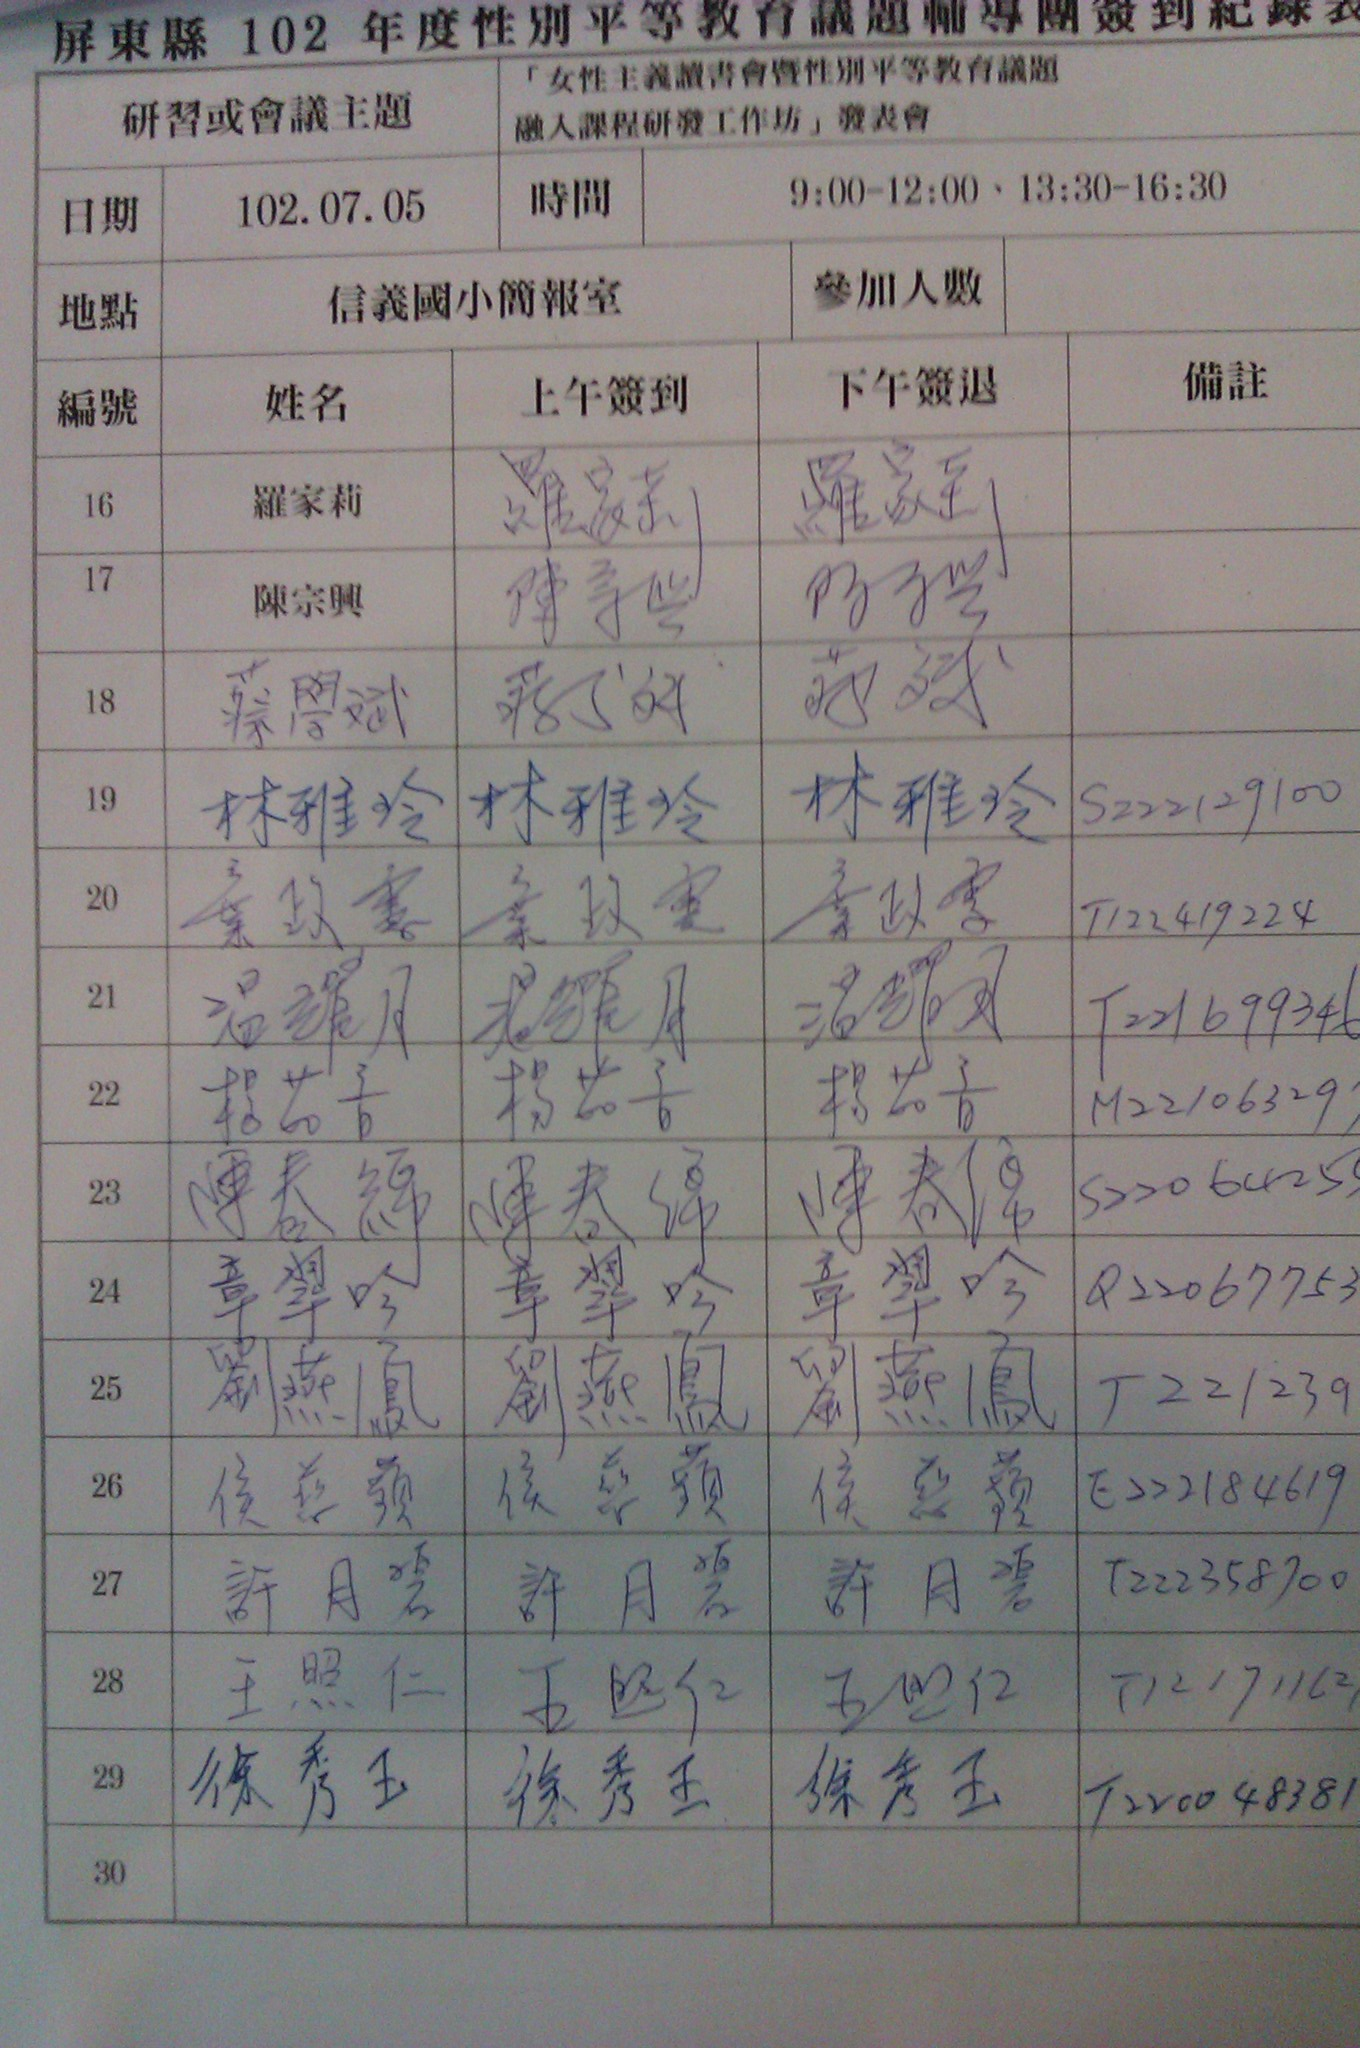 屏東縣 102 年度性別平等教育議題輔導團簽到紀錄表
研習或會議主題 「女性主義讀書會暨性別平等教育議題
融入課程研發工作坊」發表會
日期 102.07.05 時間 9:00-12:00、13:30-16:30
地點 信義國小簡報室 參加人數
編號 姓名 上午簽到 下午簽退 備註
16 羅家莉 羅家莉 羅家莉
17 陳宗興 陳宗興
18 蔡學斌
19 林雅玲 林雅玲 林雅玲 S222129100
20 葉政 葉政 葉政 T122419224
21 溫耀月 T221699346
22 楊茹音 楊茹音 楊茹音 M22106329
23 陳春綿 陳春綿 陳春綿 S22064255
24 章翠吟 章翠吟 章翠吟 Q22067753
25 劉燕鳳 劉燕鳳 劉燕鳳 T221239
26 侯慈蘋 侯慈蘋 侯慈蘋 E222184619
27 許月碧 許月碧 許月碧 T222358700
28 王照仁 王照仁 王照仁 T12171162
29 徐秀玉 徐秀玉 徐秀玉 T220048381
30